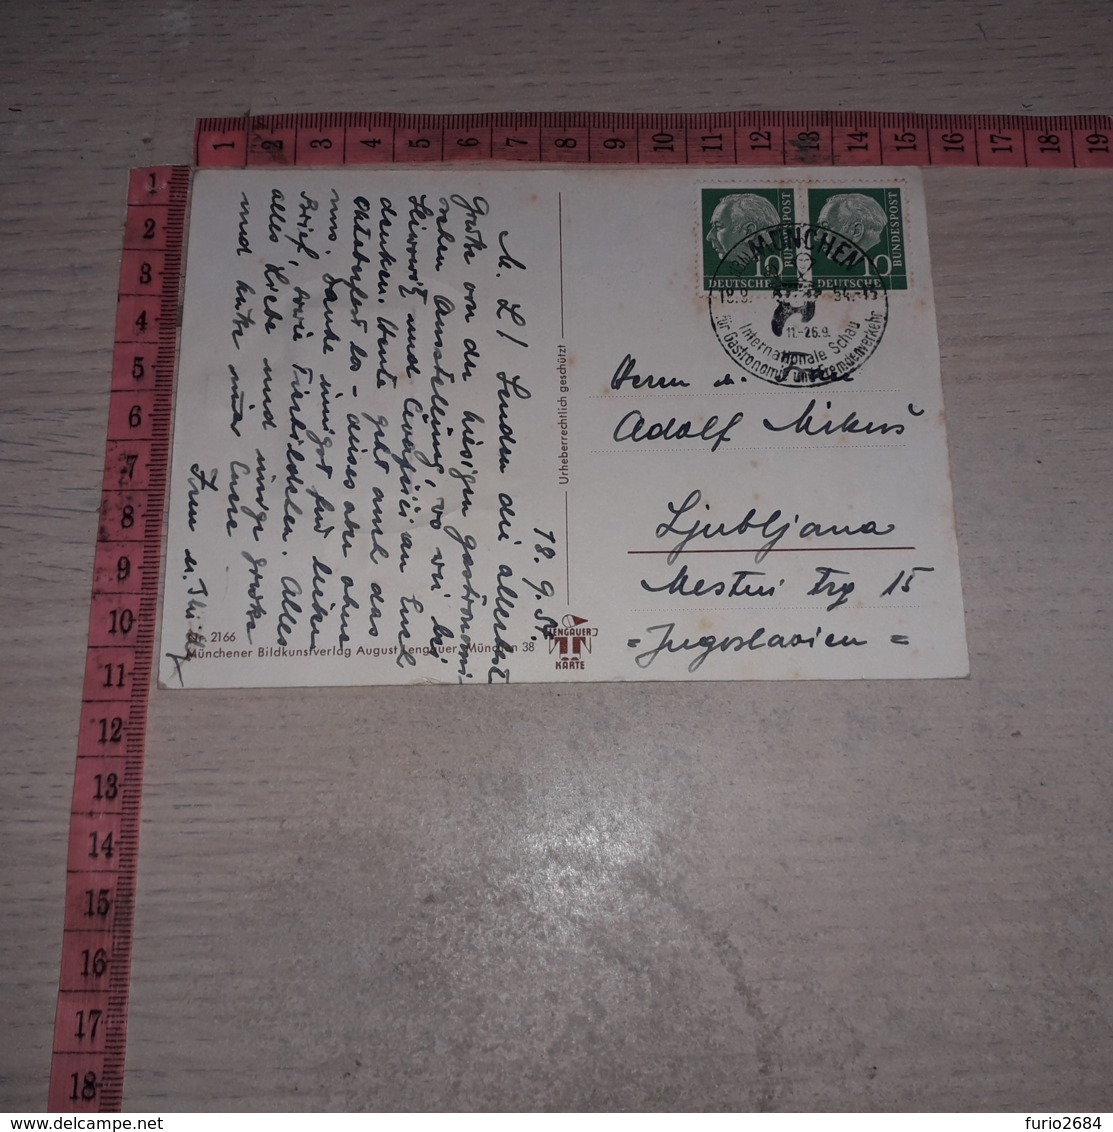 1 2 3 4 5 6 7 8 9 10 11 12 13 14 15 16 17 18 19
1
2
3
4
5
6
7
8
9
10
11
12
13
14
15
16
17
18
18. 9. 54
L. L! Senden die allerbest
Grüße von der hiesigen gastronomi
Ausstellung, wo wir bei
und an Euch
denken. Heute geht auch das
Oktoberfest los - dieses aber ohne
uns. Danke innigst für lieben
Brief, sowie Alles
alles Liebe und innige Grüße
und Euere
Nr. 2166
Münchener Bildkunstverlag August Lengauer, München 38
Urheberrechtlich geschützt
LENGAUER
KARTE
10 BUNDESPOST
DEUTSCHE
10 BUNDESPOST
DEUTSCHE
MÜNCHEN
18.9. 54.-13
11.-26.9.
Internationale Schau
für Gastronomie und Fremdenverkehr
Herrn u.
Adolf Mikuš
Ljubljana
Mestni trg 15
= Jugoslawien =
delcampe.net
furio2684